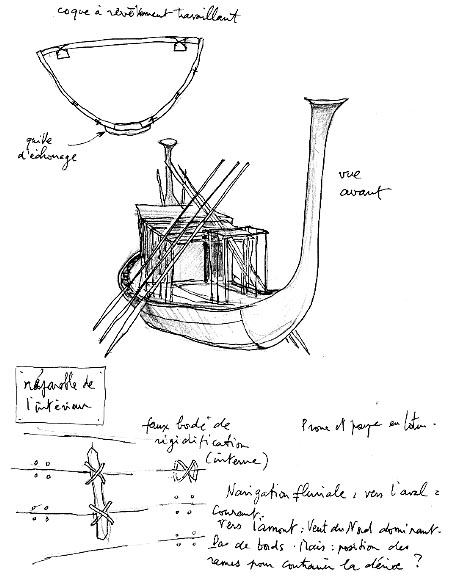 coque à revêtement travaillant
quille
d'échouage
vue
avant
réparable de
l'intérieur
faux bordé de
rigidification
(interne)
Proue et poupe en lotus.
Navigation fluviale, vers l'aval =
courant.
Vers l'amont : Vent du Nord dominant.
Pas de bords. Mais : position des
rames pour contrarier la dérive ?